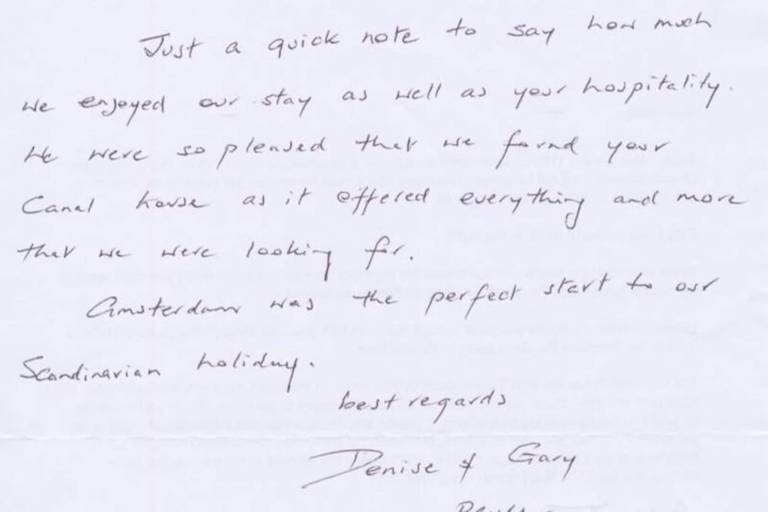 Just a quick note to say how much
we enjoyed our stay as well as your hospitality.
We were so pleased that we found your
Canal house as it offered everything and more
that we were looking for.
Amsterdam was the perfect start to our
Scandinavian holiday.
best regards
Denise & Gary